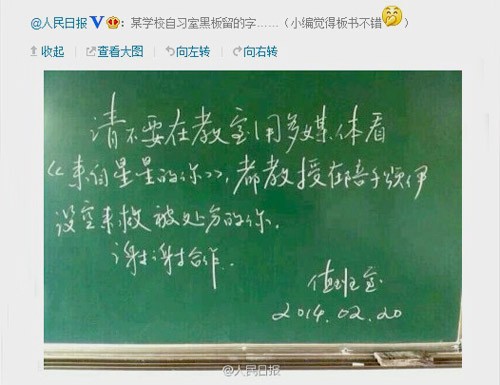 @人民日报 V：某学校自习室黑板留的字……（小编觉得板书不错）
收起 查看大图 向左转 向右转
请不要在教室用多媒体看
《来自星星的你》，都教授在陪千颂伊
没空来救被处分的你.
谢谢合作.
值班室
2014.02.20
@人民日报